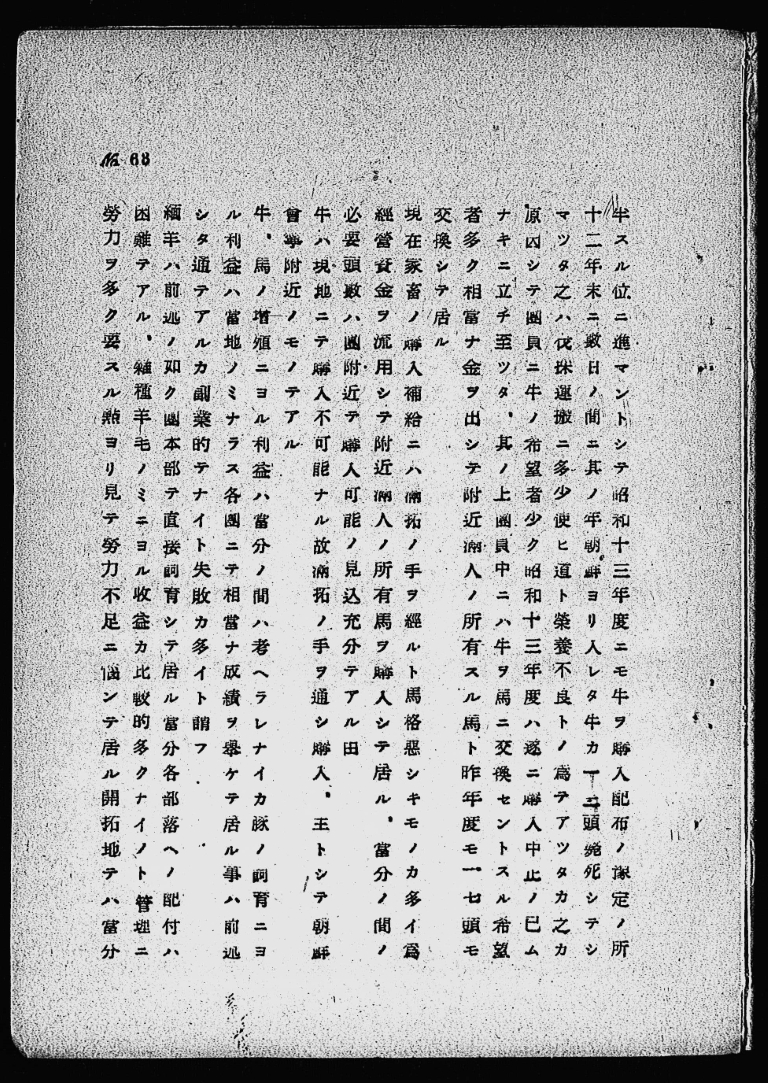 № 68
半スル位ニ進マントシテ昭和十三年度ニモ牛ヲ購入配布ノ豫定ノ所
十二年末ニ數日ノ間ニ其ノ年朝鮮ヨリ入レタ牛カ一二頭斃死シテシ
マツタ之ハ伐採運搬ニ多少使ヒ道ト榮養不良トノ爲テアツタカ之カ
原因シテ團員ニ牛ノ希望者少ク昭和十三年度ハ遂ニ購入中止ノ已ム
ナキニ立チ至ツタ、其ノ上團員中ニハ牛ヲ馬ニ交換セントスル希望
者多ク相當ナ金ヲ出シテ附近滿人ノ所有スル馬ト昨年度モ一七頭モ
交換シテ居ル
現在家畜ノ購入補給ニハ滿拓ノ手ヲ經ルト馬格惡シキモノカ多イ爲
經營資金ヲ流用シテ附近滿人ノ所有馬ヲ購入シテ居ル、當分ノ間ノ
必要頭數ハ團附近テ購入可能ノ見込充分テアル由
牛ハ現地ニテ購入不可能ナル故滿拓ノ手ヲ通シ購入、主トシテ朝鮮
會寧附近ノモノテアル
牛、馬ノ增殖ニヨル利益ハ當分ノ間ハ考ヘラレナイカ豚ノ飼育ニヨ
ル利益ハ當地ノミナラス各團ニテ相當ナ成績ヲ擧ケテ居ル事ハ前述
シタ通テアルカ副業的テナイト失敗カ多イト謂フ
緬羊ハ前述ノ如ク團本部テ直接飼育シテ居ル當分各部落ヘノ配付ハ
困難テアル、雜種羊毛ノミニヨル收益カ比較的多クナイノト管理ニ
勞力ヲ多ク要スル點ヨリ見テ勞力不足ニ惱ンテ居ル開拓地テハ當分